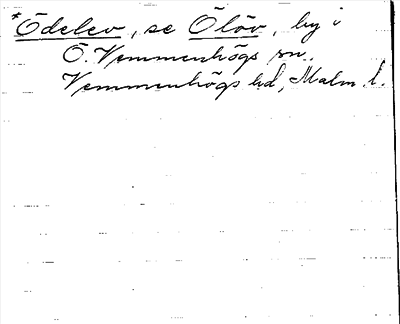 *Ödelev, se Ölöv, by i
Ö. Vemmenhögs sn.
Vemmenhögs hd, Malm. l.